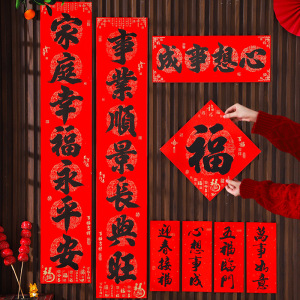 事業順景長興旺
家庭幸福永平安
心想事成
福
萬事如意
五福臨門
心想事成
迎春接福